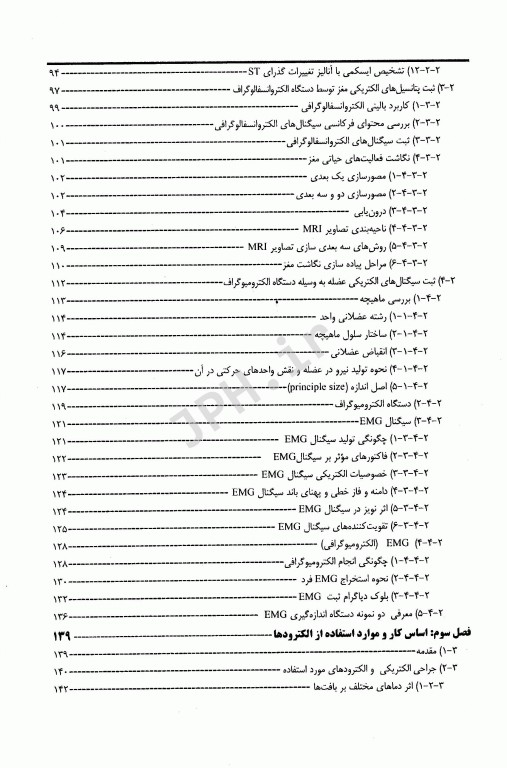 ۱۲-۲-۲) تشخیص ایسکمی با آنالیز تغییرات گذرای ST ۹۴
۳-۲) ثبت پتانسیل‌های الکتریکی مغز توسط دستگاه الکتروانسفالوگراف ۹۷
۱-۳-۲) کاربرد بالینی الکتروانسفالوگرافی ۹۹
۲-۳-۲) بررسی محتوای فرکانسی سیگنال‌های الکتروانسفالوگرافی ۱۰۰
۳-۳-۲) ثبت سیگنال‌های الکتروانسفالوگرافی ۱۰۱
۴-۳-۲) نگاشت فعالیت‌های حیاتی مغز ۱۰۱
۱-۴-۳-۲) مصورسازی یک بعدی ۱۰۲
۲-۴-۳-۲) مصورسازی دو و سه بعدی ۱۰۲
۳-۴-۳-۲) درون‌یابی ۱۰۴
۴-۴-۳-۲) ناحیه‌بندی تصاویر MRI ۱۰۶
۵-۴-۳-۲) روش‌های سه بعدی سازی تصاویر MRI ۱۰۹
۶-۴-۳-۲) مراحل پیاده سازی نگاشت مغز ۱۱۰
۴-۲) ثبت سیگنال‌های الکتریکی عضله به وسیله دستگاه الکترومیوگراف ۱۱۲
۱-۴-۲) بررسی ماهیچه ۱۱۳
۱-۱-۴-۲) رشته عضلانی واحد ۱۱۴
۲-۱-۴-۲) ساختار سلول ماهیچه ۱۱۴
۳-۱-۴-۲) انقباض عضلانی ۱۱۶
۴-۱-۴-۲) نحوه تولید نیرو در عضله و نقش واحدهای حرکتی در آن ۱۱۷
۵-۱-۴-۲) اصل اندازه (principle size) ۱۱۷
۲-۴-۲) دستگاه الکترومیوگراف ۱۱۹
۳-۴-۲) سیگنال EMG ۱۲۱
۱-۳-۴-۲) چگونگی تولید سیگنال EMG ۱۲۱
۲-۳-۴-۲) فاکتورهای مؤثر بر سیگنال EMG ۱۲۲
۳-۳-۴-۲) خصوصیات الکتریکی سیگنال EMG ۱۲۳
۴-۳-۴-۲) دامنه و فاز خطی و پهنای باند سیگنال EMG ۱۲۴
۵-۳-۴-۲) اثر نویز در سیگنال EMG ۱۲۴
۶-۳-۴-۲) تقویت‌کننده‌های سیگنال EMG ۱۲۵
۴-۴-۲) EMG (الکترومیوگرافی) ۱۲۸
۱-۴-۴-۲) چگونگی انجام الکترومیوگرافی ۱۲۸
۲-۴-۴-۲) نحوه استخراج EMG فرد ۱۳۰
۳-۴-۴-۲) بلوک دیاگرام ثبت EMG ۱۳۲
۵-۴-۲) معرفی دو نمونه دستگاه اندازه‌گیری EMG ۱۳۶
فصل سوم: اساس کار و موارد استفاده از الکترودها ۱۳۹
۱-۳) مقدمه ۱۳۹
۲-۳) جراحی الکتریکی و الکترودهای مورد استفاده ۱۴۰
۱-۲-۳) اثر دماهای مختلف بر بافت‌ها ۱۴۲
JPH.ir